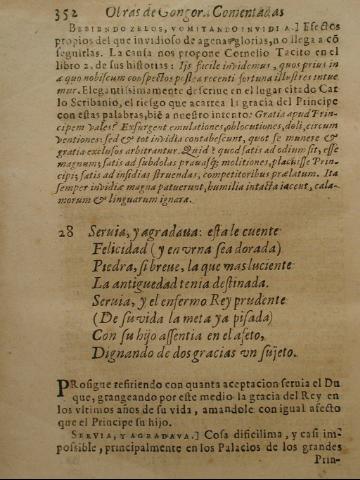 352 Obras de Gongora Comentadas
BEBIENDO ZELOS, VOMITANDO INVIDIA.] Efectos
propios del que invidioso de agenas glorias, no llega a cõ
seguirlas. La causa nos propone Cornelio Tacito en el
libro 2. de sus historias: Ijs facile invidemur, quos prius in
a quo nobiscum conspectos postea recenti fortuna illustres intue
mur. Elegantissimamente descriue en el lugar citado Car
lo Scribanio, el riesgo que acarrea la gracia del Principe
con estas palabras, biē a nuestro intento: Gratia apud Prin-
cipem vales? Exsurgent emulationes, oblocutiones, doli, circum
ventiones: sed & tot invidia contabescunt, quot se munere &
gratia exclusos arbitrantur. Quid? quod satis ad odium sit, esse
magnum; satis ad subdolas prauasq; molitiones, placuisse Prin-
cipi; satis ad insidias struendas, competitoribus prælatum. Ita
semper invidiæ magna patuerunt, humilia intacta iacent, cala-
morum & linguarum ignara.
28 Seruia, y agradaua: esta le cuente
Felicidad (y en vrna sea dorada)
Piedra, si breue, la que mas luciente
La antiguedad tenia destinada.
Seruia, y el enfermo Rey prudente
(De su vida la meta ya pisada)
Con su hijo assentia en el afeto,
Dignando de dos gracias vn sujeto.
PRosigue refiriendo con quanta aceptacion seruia el Du
que, grangeando por este medio la gracia del Rey en
los vltimos años de su vida, amandole con igual afecto
que el Principe su hijo.
SERVIA, Y AGRADAVA.] Cosa dificilima, y casi im-
possible, principalmente en los Palacios de los grandes
Prin-